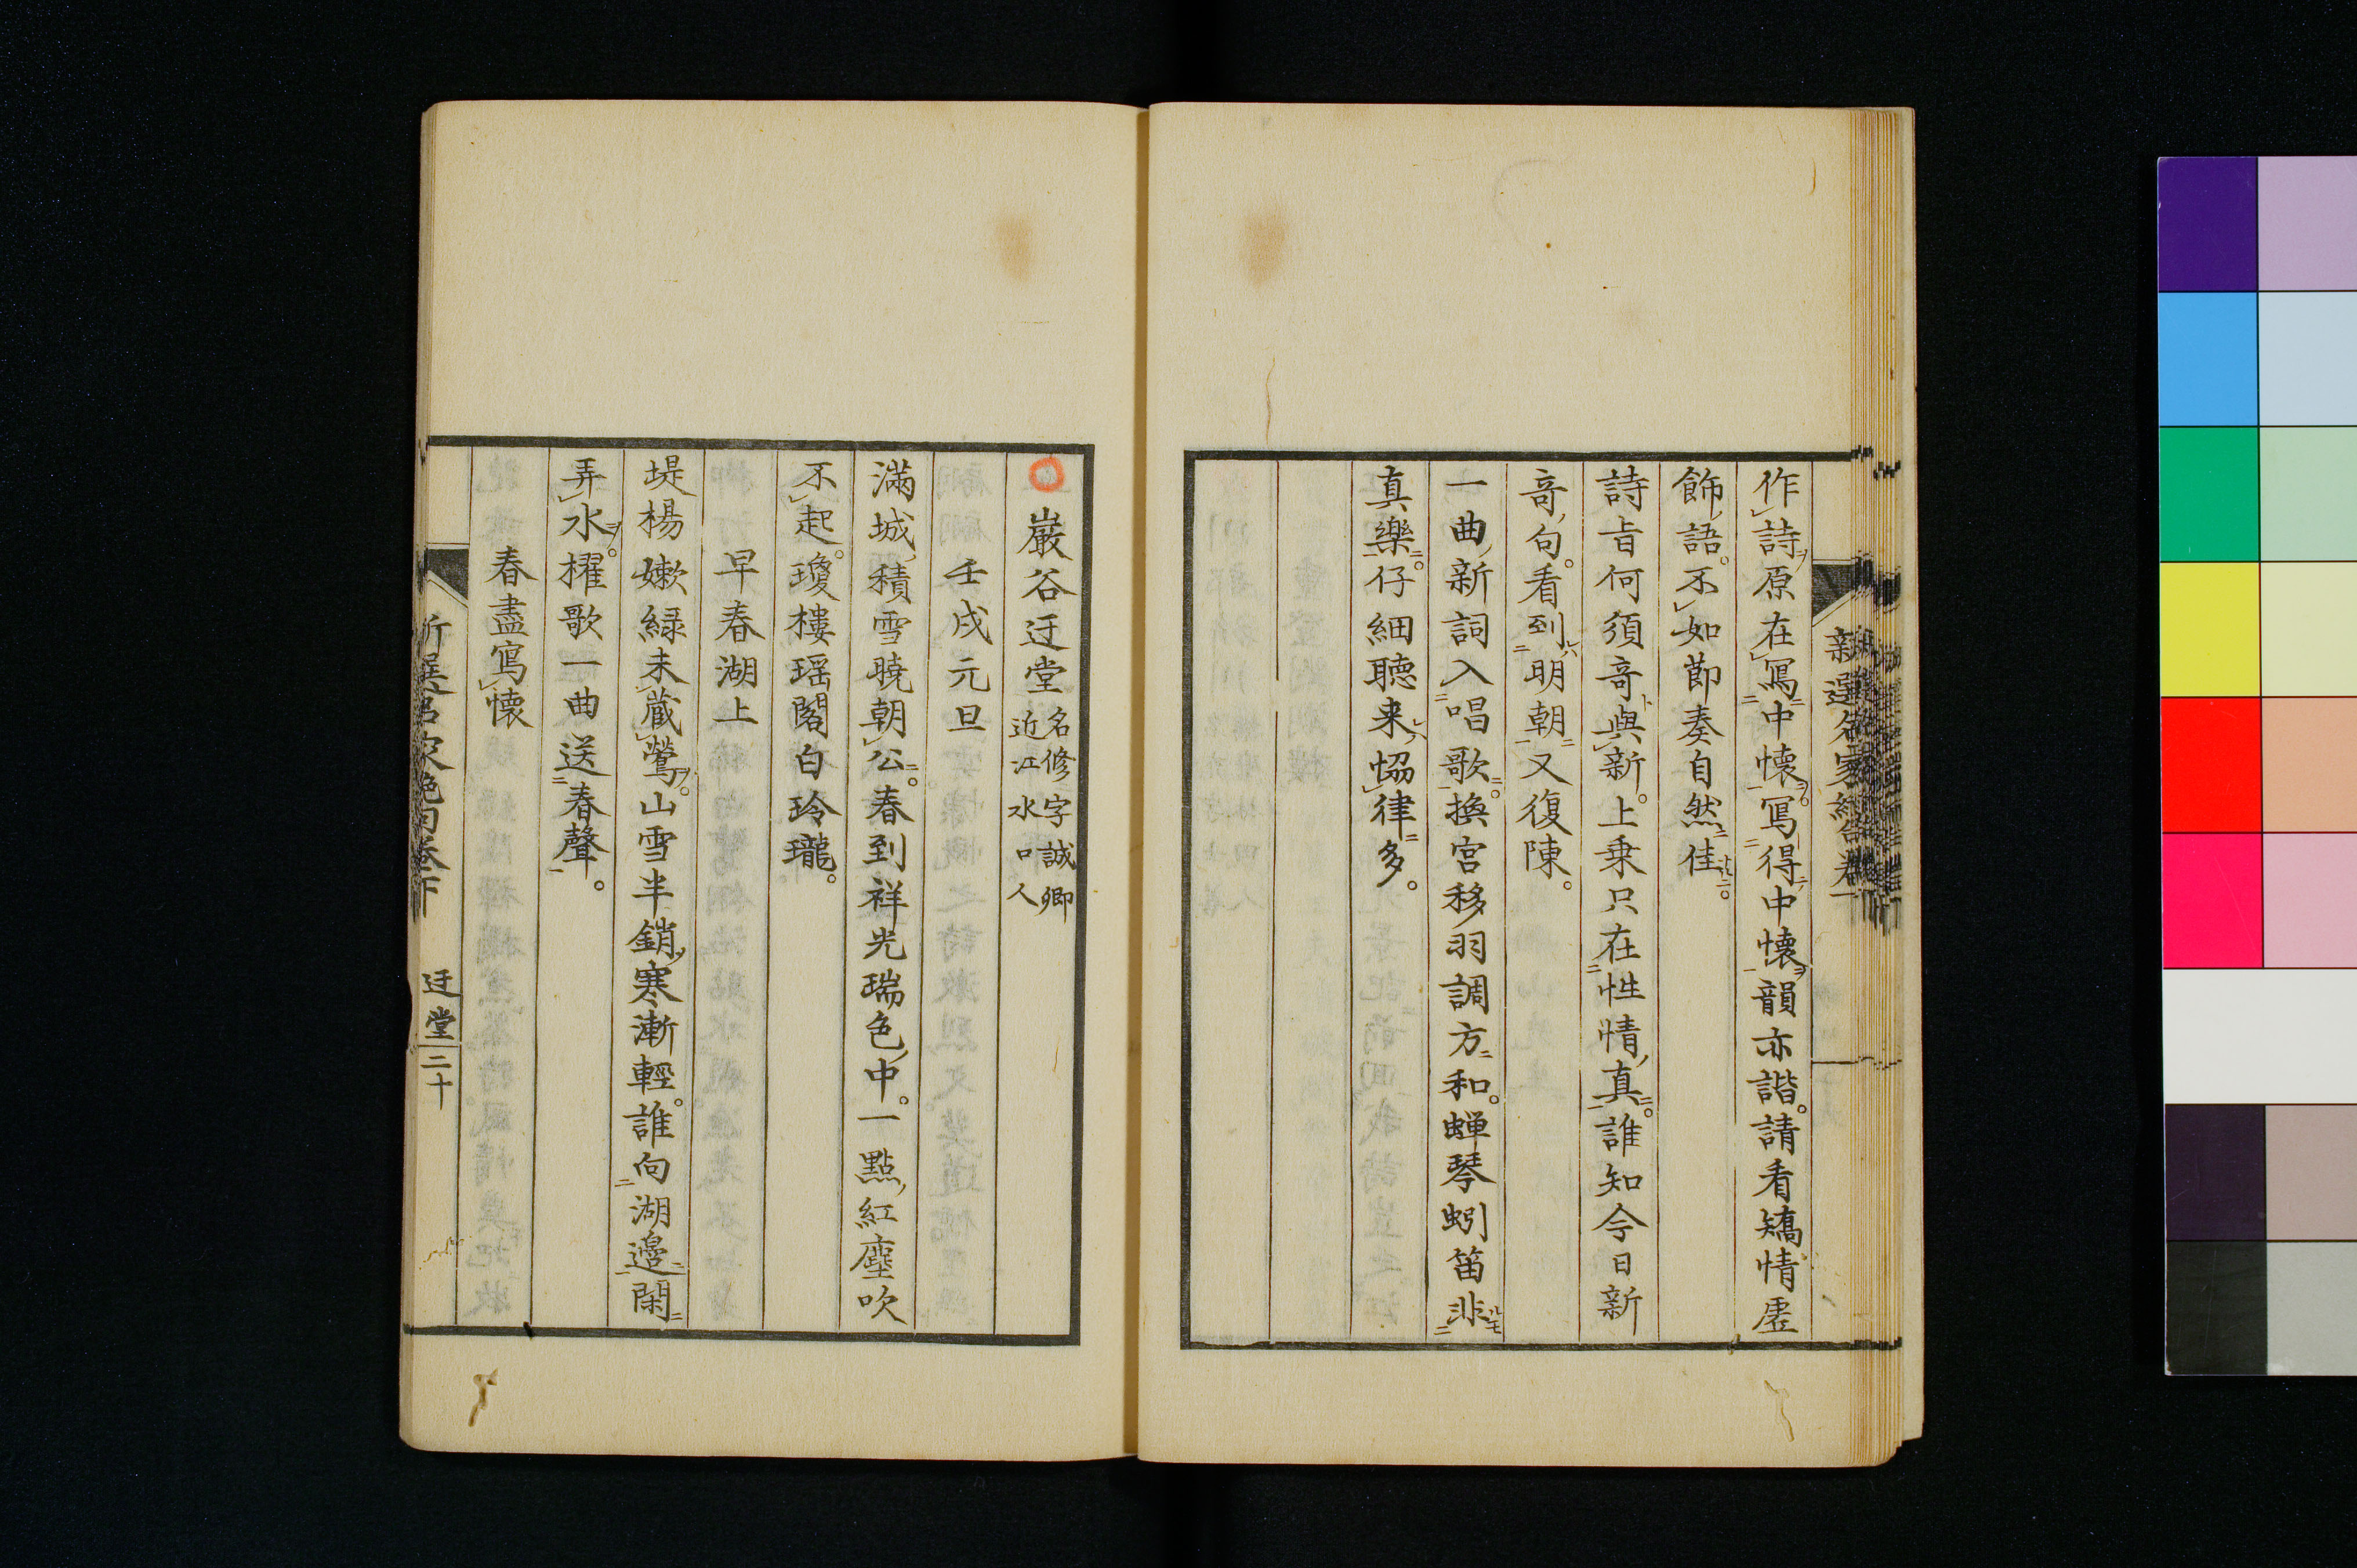 作詩原在寫中懷。寫得中懷韻亦諧。請看矯情虚
飾語。不如節奏自然佳。
詩旨何須竒與新。上乗只在性情真。誰知今日新
竒句。看到明朝又復陳。
一曲新詞入唱歌。換宮移羽調方和。蝉琴蚓笛非
真樂。仔細聴来恊律多。
巖谷迂堂 名修字誠卿
近江水口人
壬戌元旦
滿城積雪曉朝公。春到祥光瑞色中。一點紅塵吹
不起。瓊樓瑶閣白玲瓏。
早春湖上
堤楊嫰緑未蔵鶯。山雪半銷寒漸輕。誰向湖邉閑
弄水。櫂歌一曲送春聲。
春盡寫懷
迂堂 二十